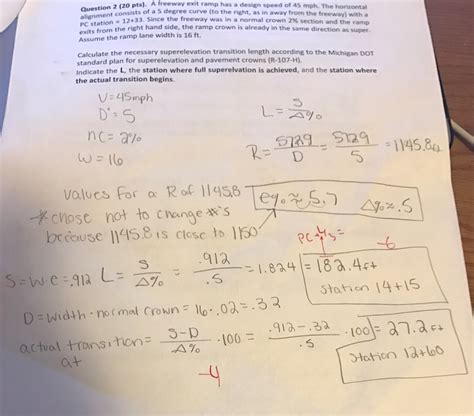 Question 2 (20 pts). A freeway exit ramp has a design speed of 45 mph. The horizontal
alignment consists of a 5 degree curve (to the right, as in away from the freeway) with a
PC station = 12+33. Since the freeway was in a normal crown 2% section and the ramp
exits from the right hand side, the ramp crown is already in the same direction as super.
Assume the ramp lane width is 16 ft.
Calculate the necessary superelevation transition length according to the Michigan DOT
standard plan for superelevation and pavement crowns (R-107-H).
Indicate the L, the station where full superelvation is achieved, and the station where
the actual transition begins.
V=45mph
D°=5
nc=2%
w=16
L= S/Δ%
R= 5729/D = 5729/5 = 1145.8
values for a R of 1145.8 e% ≈ 5.7 Δ% ≈ .5
* chose not to change #'s
because 1145.8 is close to 1150
PC-
-6
S=w e=.912 L= S/Δ% = .912/.5 = 1.824 = 182.4ft
Station 14+15
D=width · normal crown = 16·.02=.32
actual transition = S-D/Δ% ·100 = .912-.32/.5 ·100 = 27.2ft
at
Station 12+60
-4